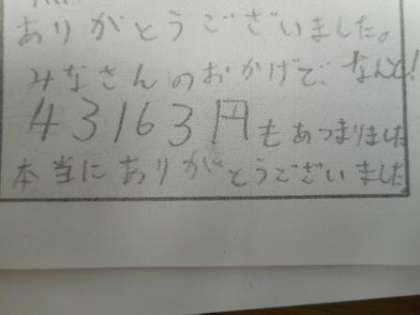 ありがとうございました。
みなさんのおかげで、なんと!
43163円もあつまりました
本当にありがとうございました